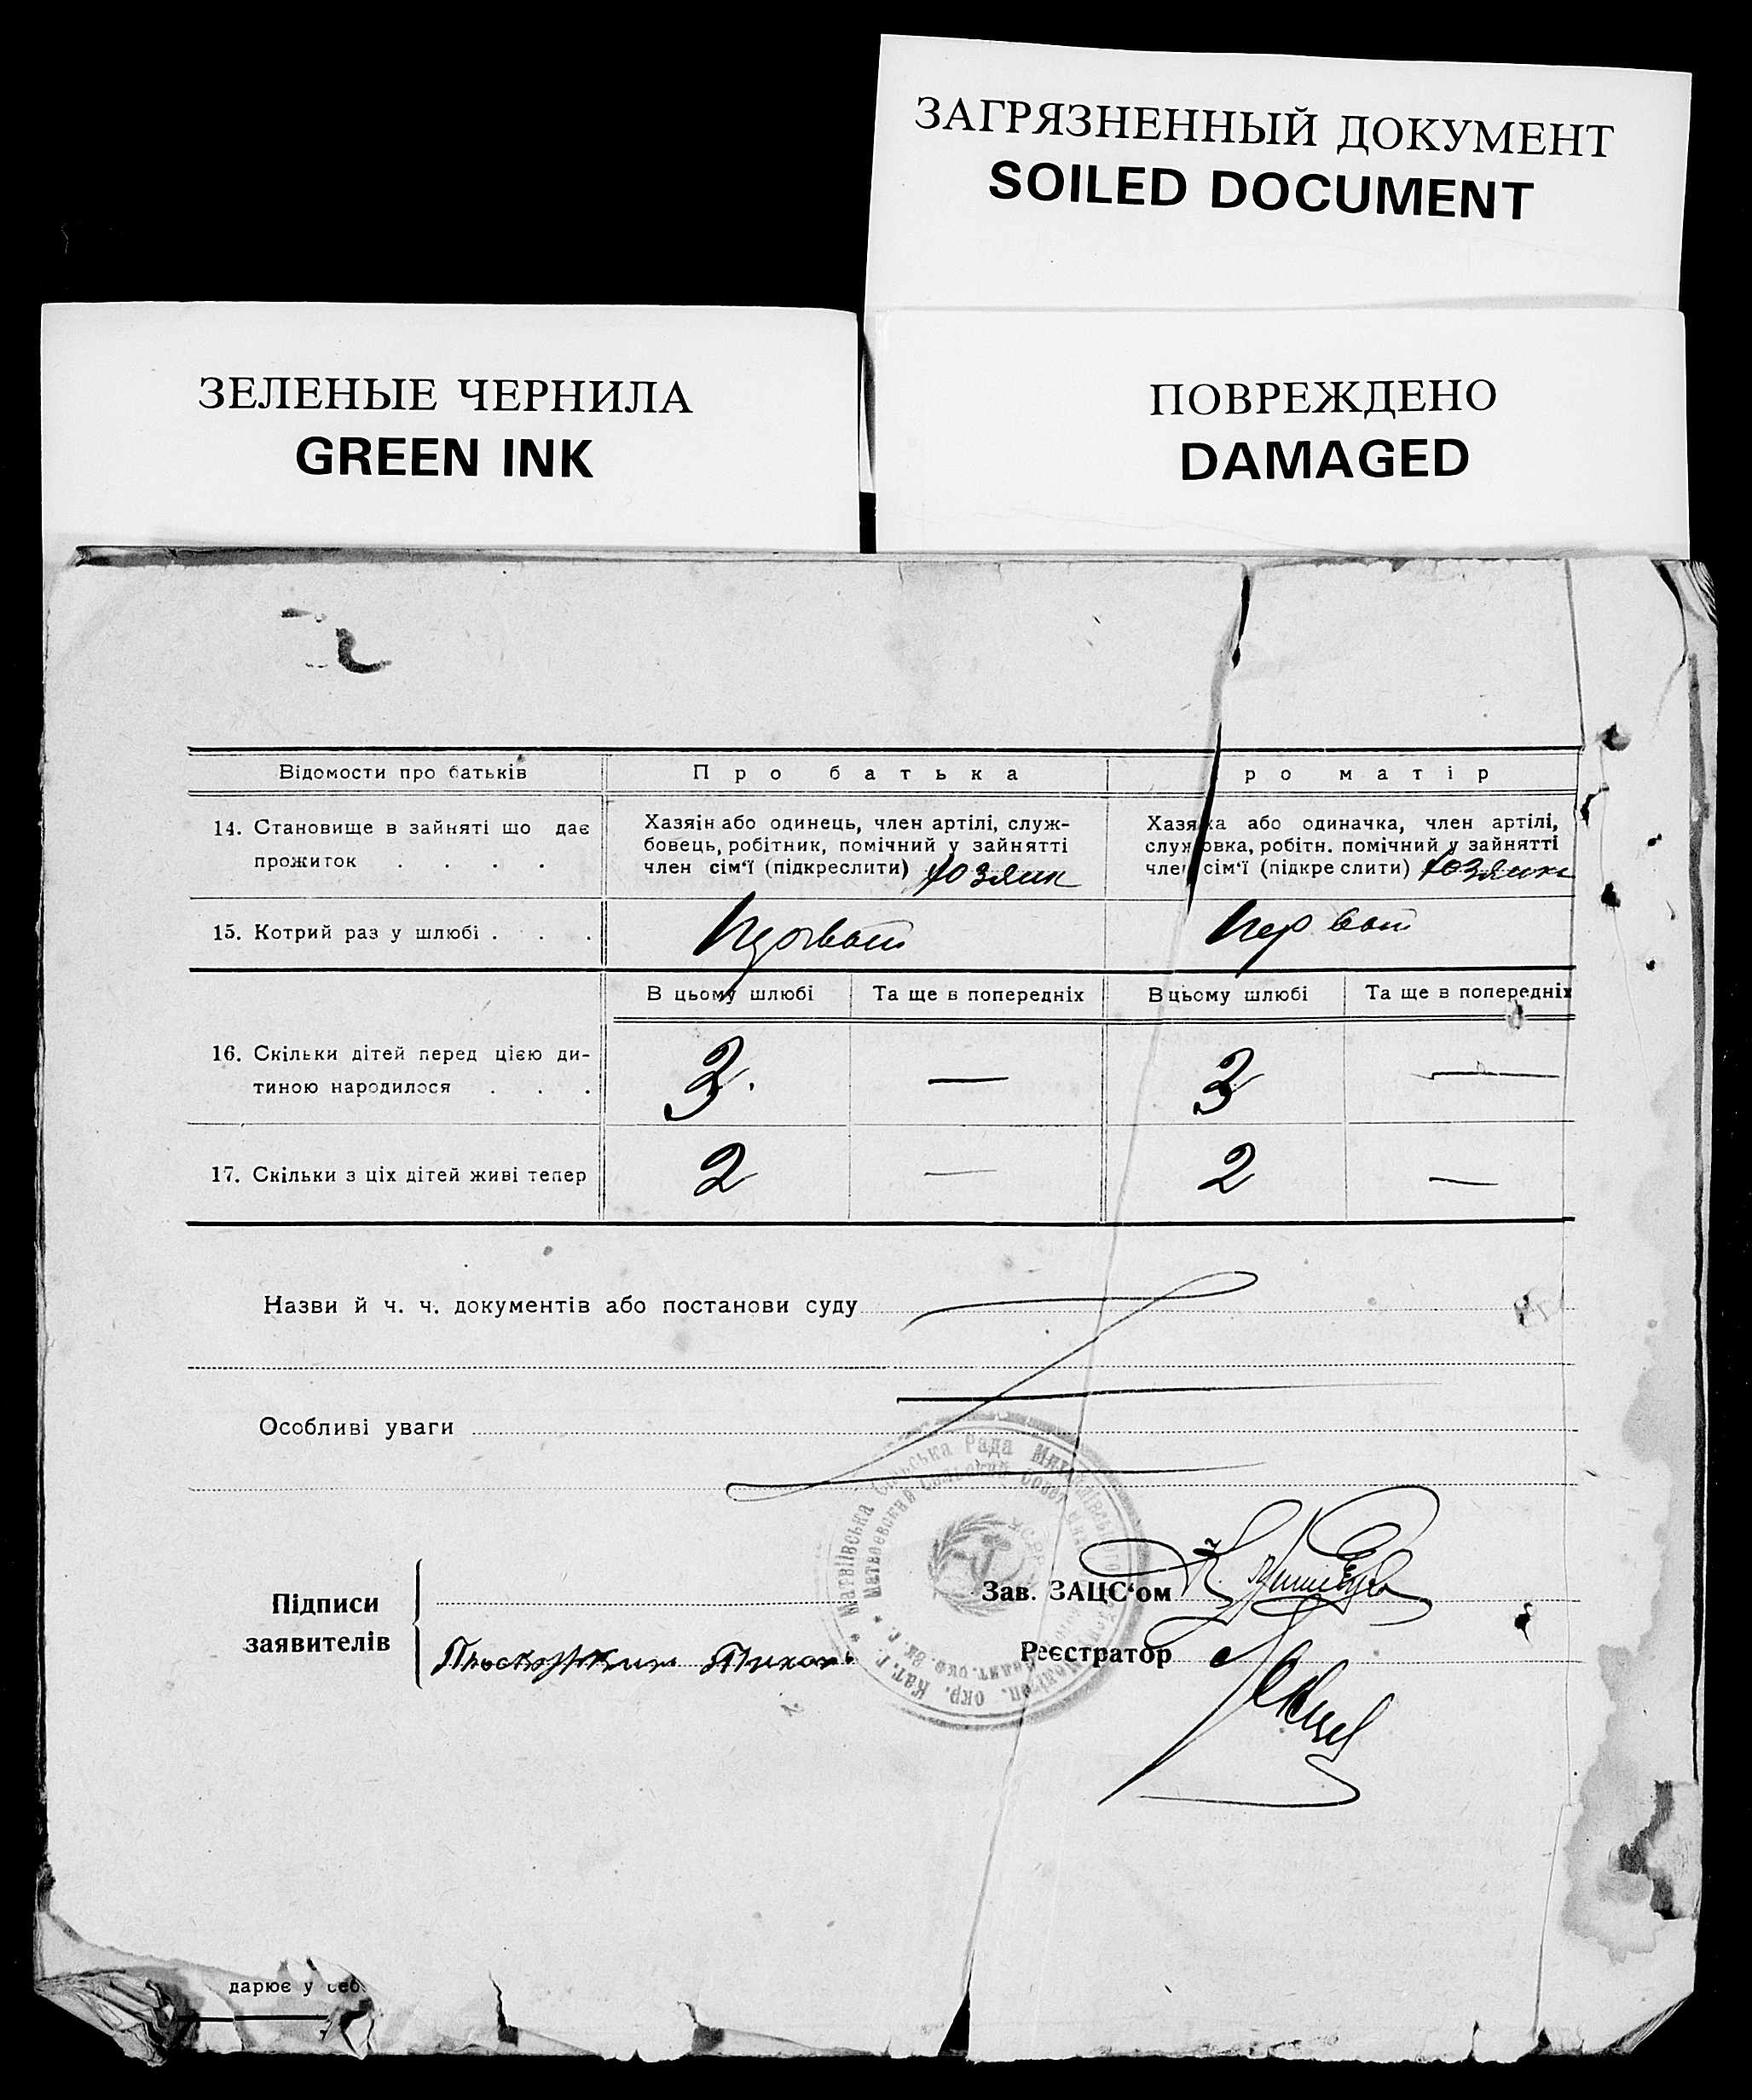 ЗАГРЯЗНЕННЫЙ ДОКУМЕНТ
SOILED DOCUMENT
ЗЕЛЕНЫЕ ЧЕРНИЛА
GREEN INK
ПОВРЕЖДЕНО
DAMAGED
Відомости про батьків
Про батька
ро матір
14. Становище в зайняті що дає
прожиток . . . .
Хазяїн або одинець, член артілі, служ-
бовець, робітник, помічний у зайнятті
член сім'ї (підкреслити) хозяин
Хазяйка або одиначка, член артілі,
службовка, робітн. помічний у зайнятті
член сім'ї (підкреслити)
15. Котрий раз у шлюбі . . .
Первый
В цьому шлюбі
Та ще в попередніх
В цьому шлюбі
Та ще в попередніх
16. Скільки дітей перед цією ди-
тиною народилося . . .
3. — 3 —
17. Скільки з ціх дітей живі тепер
2 — 2 —
Назви й ч. ч. документів або постанови суду
Особливі уваги
Матвіївська Сільська Рада
Матвеевский Сельский Совет
Підписи
заявителів
Зав. ЗАЦС'ом
Реєстратор
дарює у себ